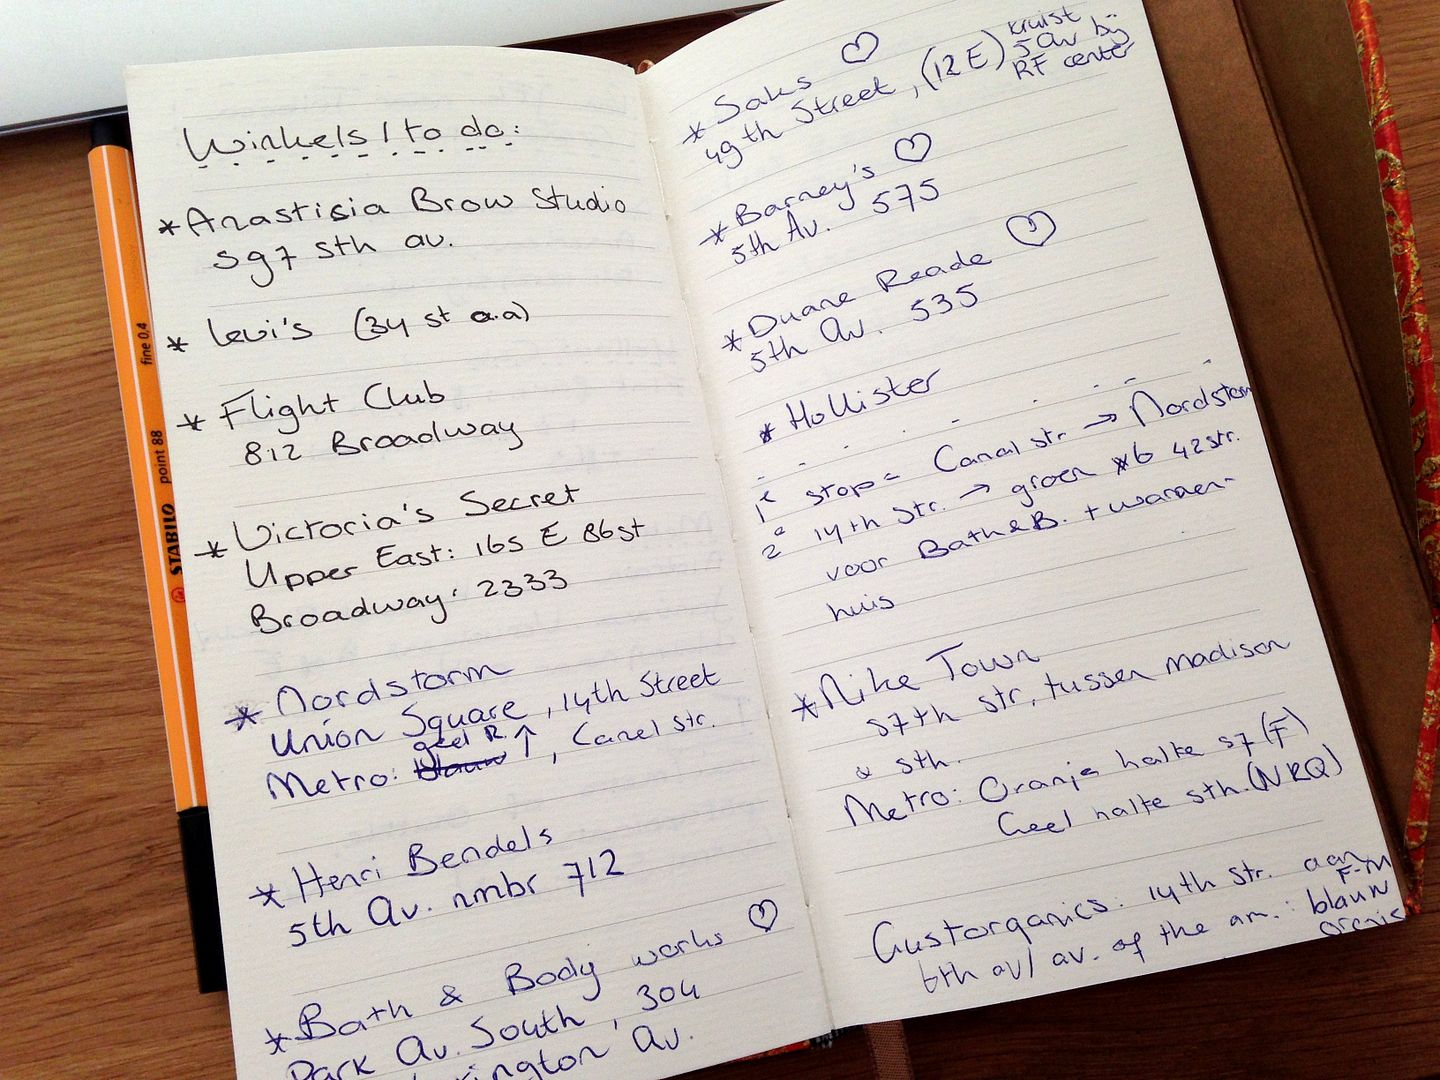 Winkels / to do:
* Anastisia Brow Studio
597 5th av.
* Levi's (34 st a.a)
* Flight Club
812 Broadway
* Victoria's Secret
Upper East: 165 E 86st
Broadway: 2333
* Nordstorm
Union Square, 14th Street
geel R.
Metro: blauw ↑, Canel str.
* Henri Bendels
5th Av. nmbr 712
* Bath & Body works ♡
Park Av. South, 304
ington Av.
STABILO point 88 fine 0.4
* Saks ♡
49th Street, (12E) kruist
5av bij
RF center
* Barney's ♡
5th Av. 575
* Duane Reade ♡
5th Av. 535
* Hollister
1e stop = Canal str. → Nordstorm
2e 14th Str. → groen *6 42str.
voor Bath&B. + waren-
huis
* Nike Town
57th str, tussen Madison
& 5th.
Metro: Oranje halte 57 (F)
Geel halte 5th. (NRQ)
Gustorganics: 14th str. aan
6th av/ av. of the am.: F-M
blauw
oranje